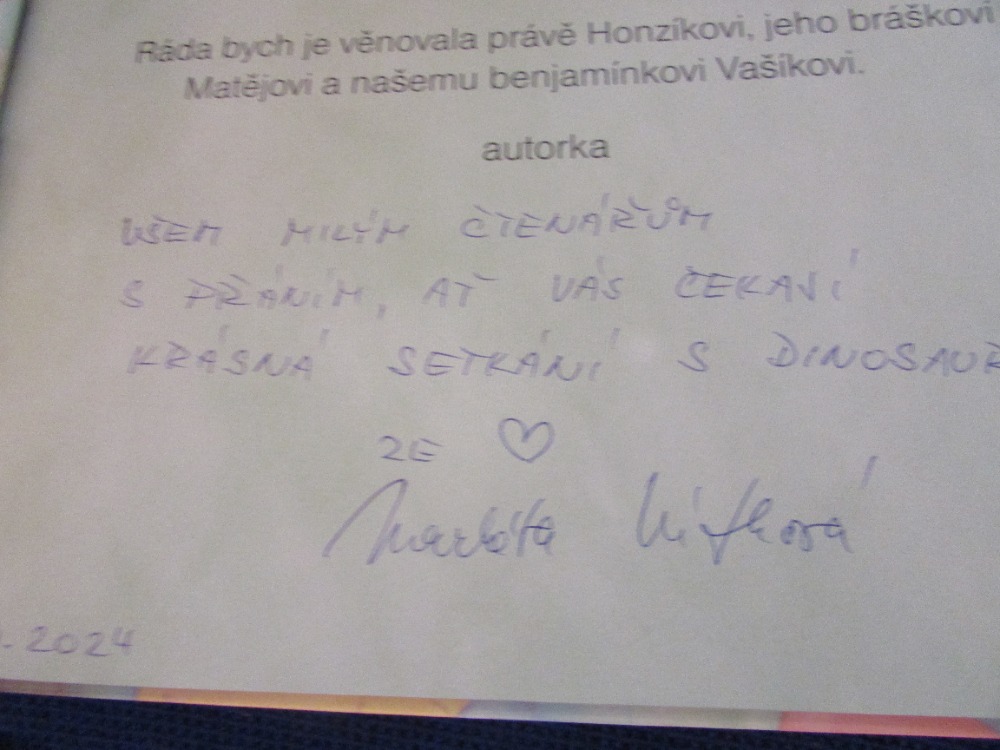 Ráda bych je věnovala právě Honzíkovi, jeho bráškovi
Matějovi a našemu benjamínkovi Vašíkovi.
autorka
VŠEM MILÝM ČTENÁŘŮM
S PŘÁNÍM, AŤ VÁS ČEKAJÍ
KRÁSNÁ SETKÁNÍ S DINOSAUR
ZE ♡
Markéta
. 2024